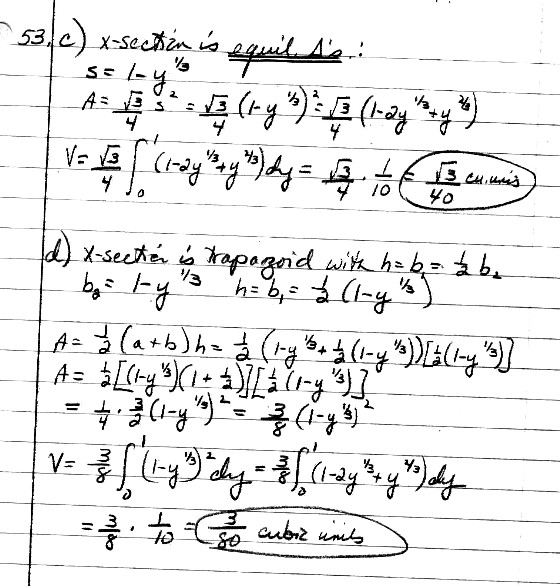 53. c) x-section is equil. Δ's :
s = 1 - y^{1/3}
A = √3/4 s² = √3/4 (1-y^{1/3})² = √3/4 (1-2y^{1/3}+y^{2/3})
V = √3/4 ∫₀¹ (1-2y^{1/3}+y^{2/3}) dy = √3/4 · 1/10 = √3/40 cu. units
d) x-section is trapazoid with h = b₁ = 1/2 b₂
b₂ = 1 - y^{1/3} h = b₁ = 1/2 (1-y^{1/3})
A = 1/2 (a+b) h = 1/2 (1-y^{1/3} + 1/2 (1-y^{1/3})) [1/2 (1-y^{1/3})]
A = 1/2 [(1-y^{1/3})(1 + 1/2)] [1/2 (1-y^{1/3})]
= 1/4 · 3/2 (1-y^{1/3})² = 3/8 (1-y^{1/3})²
V = 3/8 ∫₀¹ (1-y^{1/3})² dy = 3/8 ∫₀¹ (1-2y^{1/3}+y^{2/3}) dy
= 3/8 · 1/10 = 3/80 cubic units